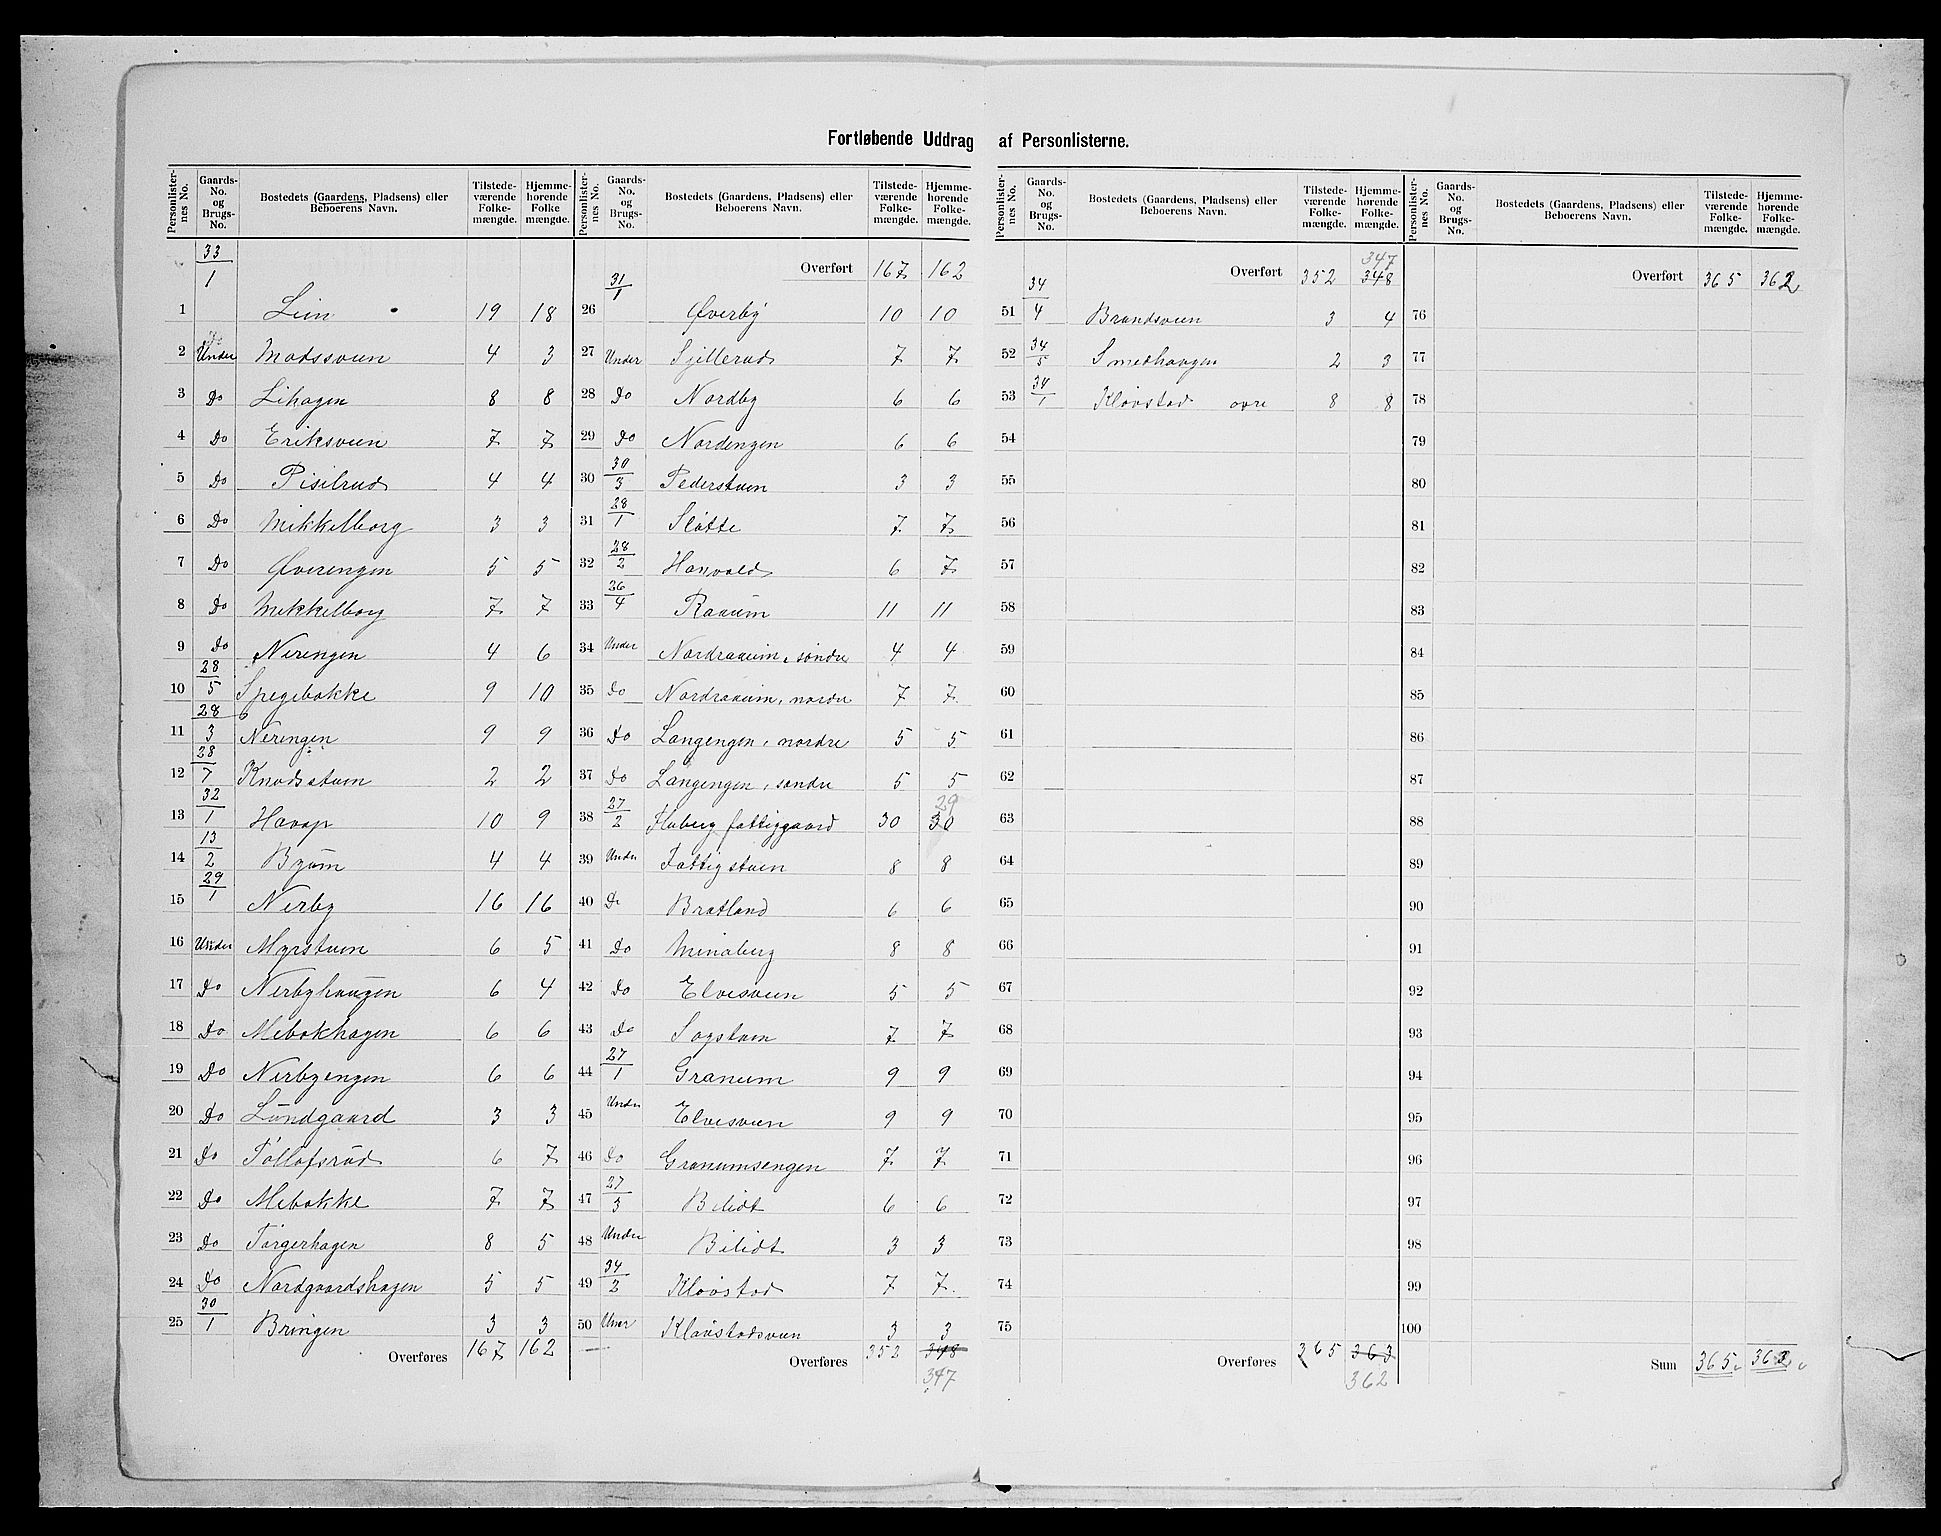 Fortløbende Uddrag af Personlisterne.
Personlister-nes No. | Gaards-No. og Brugs-No. | Bostedets (Gaardens, Pladsens) eller Beboerens Navn. | Tilstede-værende Folke-mængde. | Hjemme-hørende Folke mængde.
1 | 33/1 | Lein | 19 | 18
2 | Under | Madssveen | 4 | 3
3 | Do | Lihagen | 8 | 8
4 | Do | Eriksveen | 7 | 7
5 | Do | Pisilrud | 4 | 4
6 | Do | Mikkelborg | 3 | 3
7 | Do | Øverengen | 5 | 5
8 | Do | Mikkelborg | 7 | 7
9 | Do | Nerengen | 4 | 6
10 | 28/5 | Spegebakke | 9 | 10
11 | 28/3 6 | Nerengen | 9 | 9
12 | 28/7 | Knudsstuen | 2 | 2
13 | 32/1 | Haarap | 10 | 9
14 | 13/2 | Byum | 4 | 4
15 | 29/1 | Nerby | 16 | 16
16 | Under | Myrstuen | 6 | 5
17 | Do | Nerbyhaugen | 6 | 4
18 | Do | Mebakhagen | 6 | 6
19 | Do | Nerbyengen | 6 | 6
20 | Do | Lundgaard | 3 | 3
21 | Do | Tollofsrud | 6 | 7
22 | Do | Mebakke | 7 | 7
23 | Do | Torgerhagen | 8 | 5
24 | Do | Nordgaardshagen | 5 | 5
25 | 30/1 | Bringen | 3 | 3
Overføres 167 162
Personlister-nes No. | Gaards-No. og Brugs-No. | Bostedets (Gaardens, Pladsens) eller Beboerens Navn. | Tilstede-værende Folke-mængde. | Hjemme-hørende Folke-mængde.
Overført 167 162
26 | 31/1 | Øverby | 10 | 10
27 | Under | Sjillerud | 7 | 7
28 | Do | Nordby | 6 | 6
29 | Do | Nordengen | 6 | 6
30 | 30/3 | Pederstuen | 3 | 3
31 | 28/1 | Slotte | 7 | 7
32 | 28/2 | Hanvold | 6 | 7
33 | 26/4 | Raaum | 11 | 11
34 | Under | Nordraaum, søndre | 4 | 4
35 | Do | Nordraaum, nordre | 7 | 7
36 | Do | Langengen, nordre | 5 | 5
37 | Do | Langengen, søndre | 5 | 5
38 | 27/2 | Fluberg fattiggaard | 30 | 30 29
39 | Under | Fattigstuen | 8 | 8
40 | Do | Bratland | 6 | 6
41 | Do | Minaberg | 8 | 8
42 | Do | Elvesveen | 5 | 5
43 | Do | Sagstuen | 7 | 7
44 | 27/1 | Granum | 9 | 9
45 | Under | Elvesveen | 9 | 9
46 | Do | Granumsengen | 7 | 7
47 | 27/3 | Bilidt | 6 | 6
48 | Under | Bilidt | 3 | 3
49 | 34/2 | Kløvstad | 7 | 7
50 | Uner | Kløvstadsveen | 3 | 3
Overføres 352 348
347
Personlister-nes No. | Gaards-No. og Brugs-No. | Bostedets (Gaardens, Pladsens) eller Beboerens Navn. | Tilstede-værende Folke-mængde. | Hjemme-hørende Folke-mængde.
347
Overført 352 348
51 | 34/4 | Brandsveen | 3 | 4
52 | 34/5 | Smedhaugen | 2 | 3
53 | 34/1 | Kløvstad øvre | 8 | 8
54
55
56
57
58
59
60
61
62
63
64
65
66
67
68
69
70
71
72
73
74
75
Overføres 365 363
362
Personlister-nes No. | Gaards-No. og Brugs-No. | Bostedets (Gaardens, Pladsens) eller Beboerens Navn. | Tilstede-værende Folke-mængde. | Hjemme-hørende Folke-mængde.
Overført 365 362
76
77
78
79
80
81
82
83
84
85
86
87
88
89
90
91
92
93
94
95
96
97
98
99
100
Sum 365 362